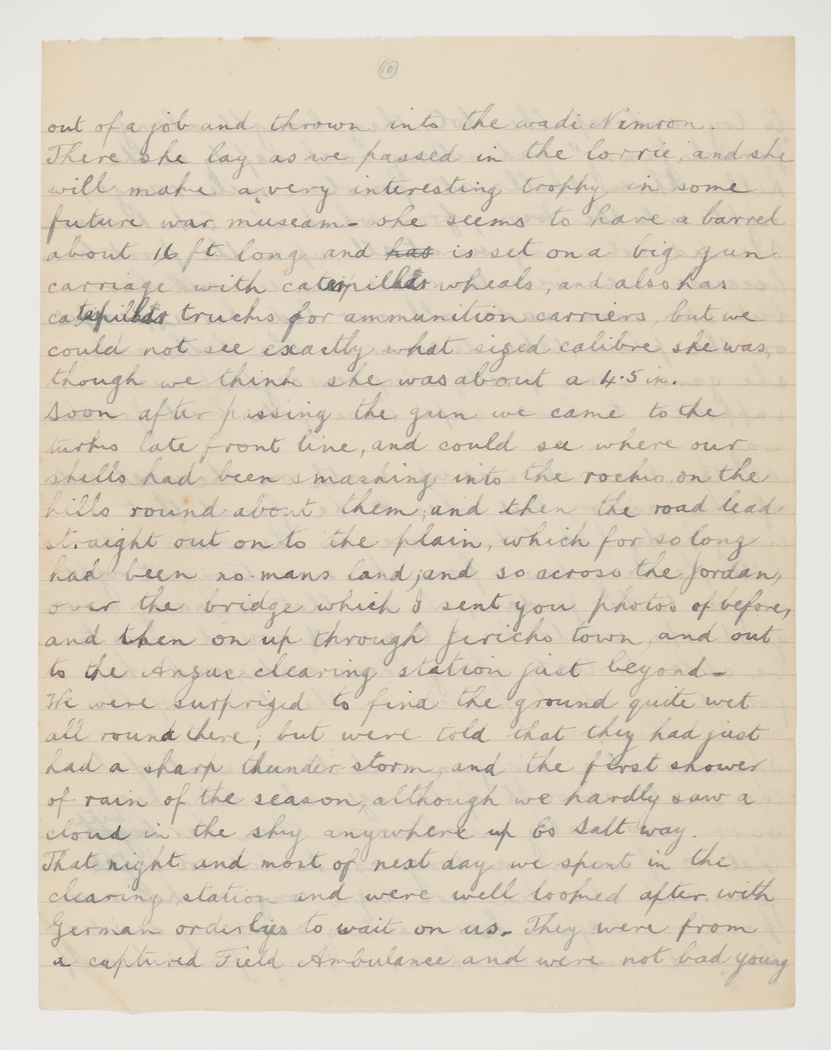 10
out of a job and thrown into the wadi Nimron.
There she lay as we passed in the lorrie, and she
will make a very interesting trophy in some
future war museam - she seems to have a barrel
about 16 ft. long and has is set on a big gun
carriage with caterpillar wheals, and also has
catepillar trucks for ammunition carriers, but we
could not see exactly what sized calibre she was,
though we think she was about a 4.5 in.
Soon after passing the gun we came to the
turks late front line, and could see where our
shells had been smashing into the rocks on the
hills round about them, and then the road lead
straight out on to the plain, which for so long
had been no-mans land, and so across the Jordan,
over the bridge which I sent you photos of before,
and then on up through Jericho town, and out
to the Anzac clearing station just beyond -
We were surprized to find the ground quite wet
all round there, but were told that they had just
had a sharp thunder-storm, and the first shower
of rain of the season, although we hardly saw a
cloud in the sky anywhere up Es Salt way.
That night and most of next day we spent in the
clearing station and were well looked after, with
German orderlies to wait on us - They were from
a captured Field Ambulance and were not bad young